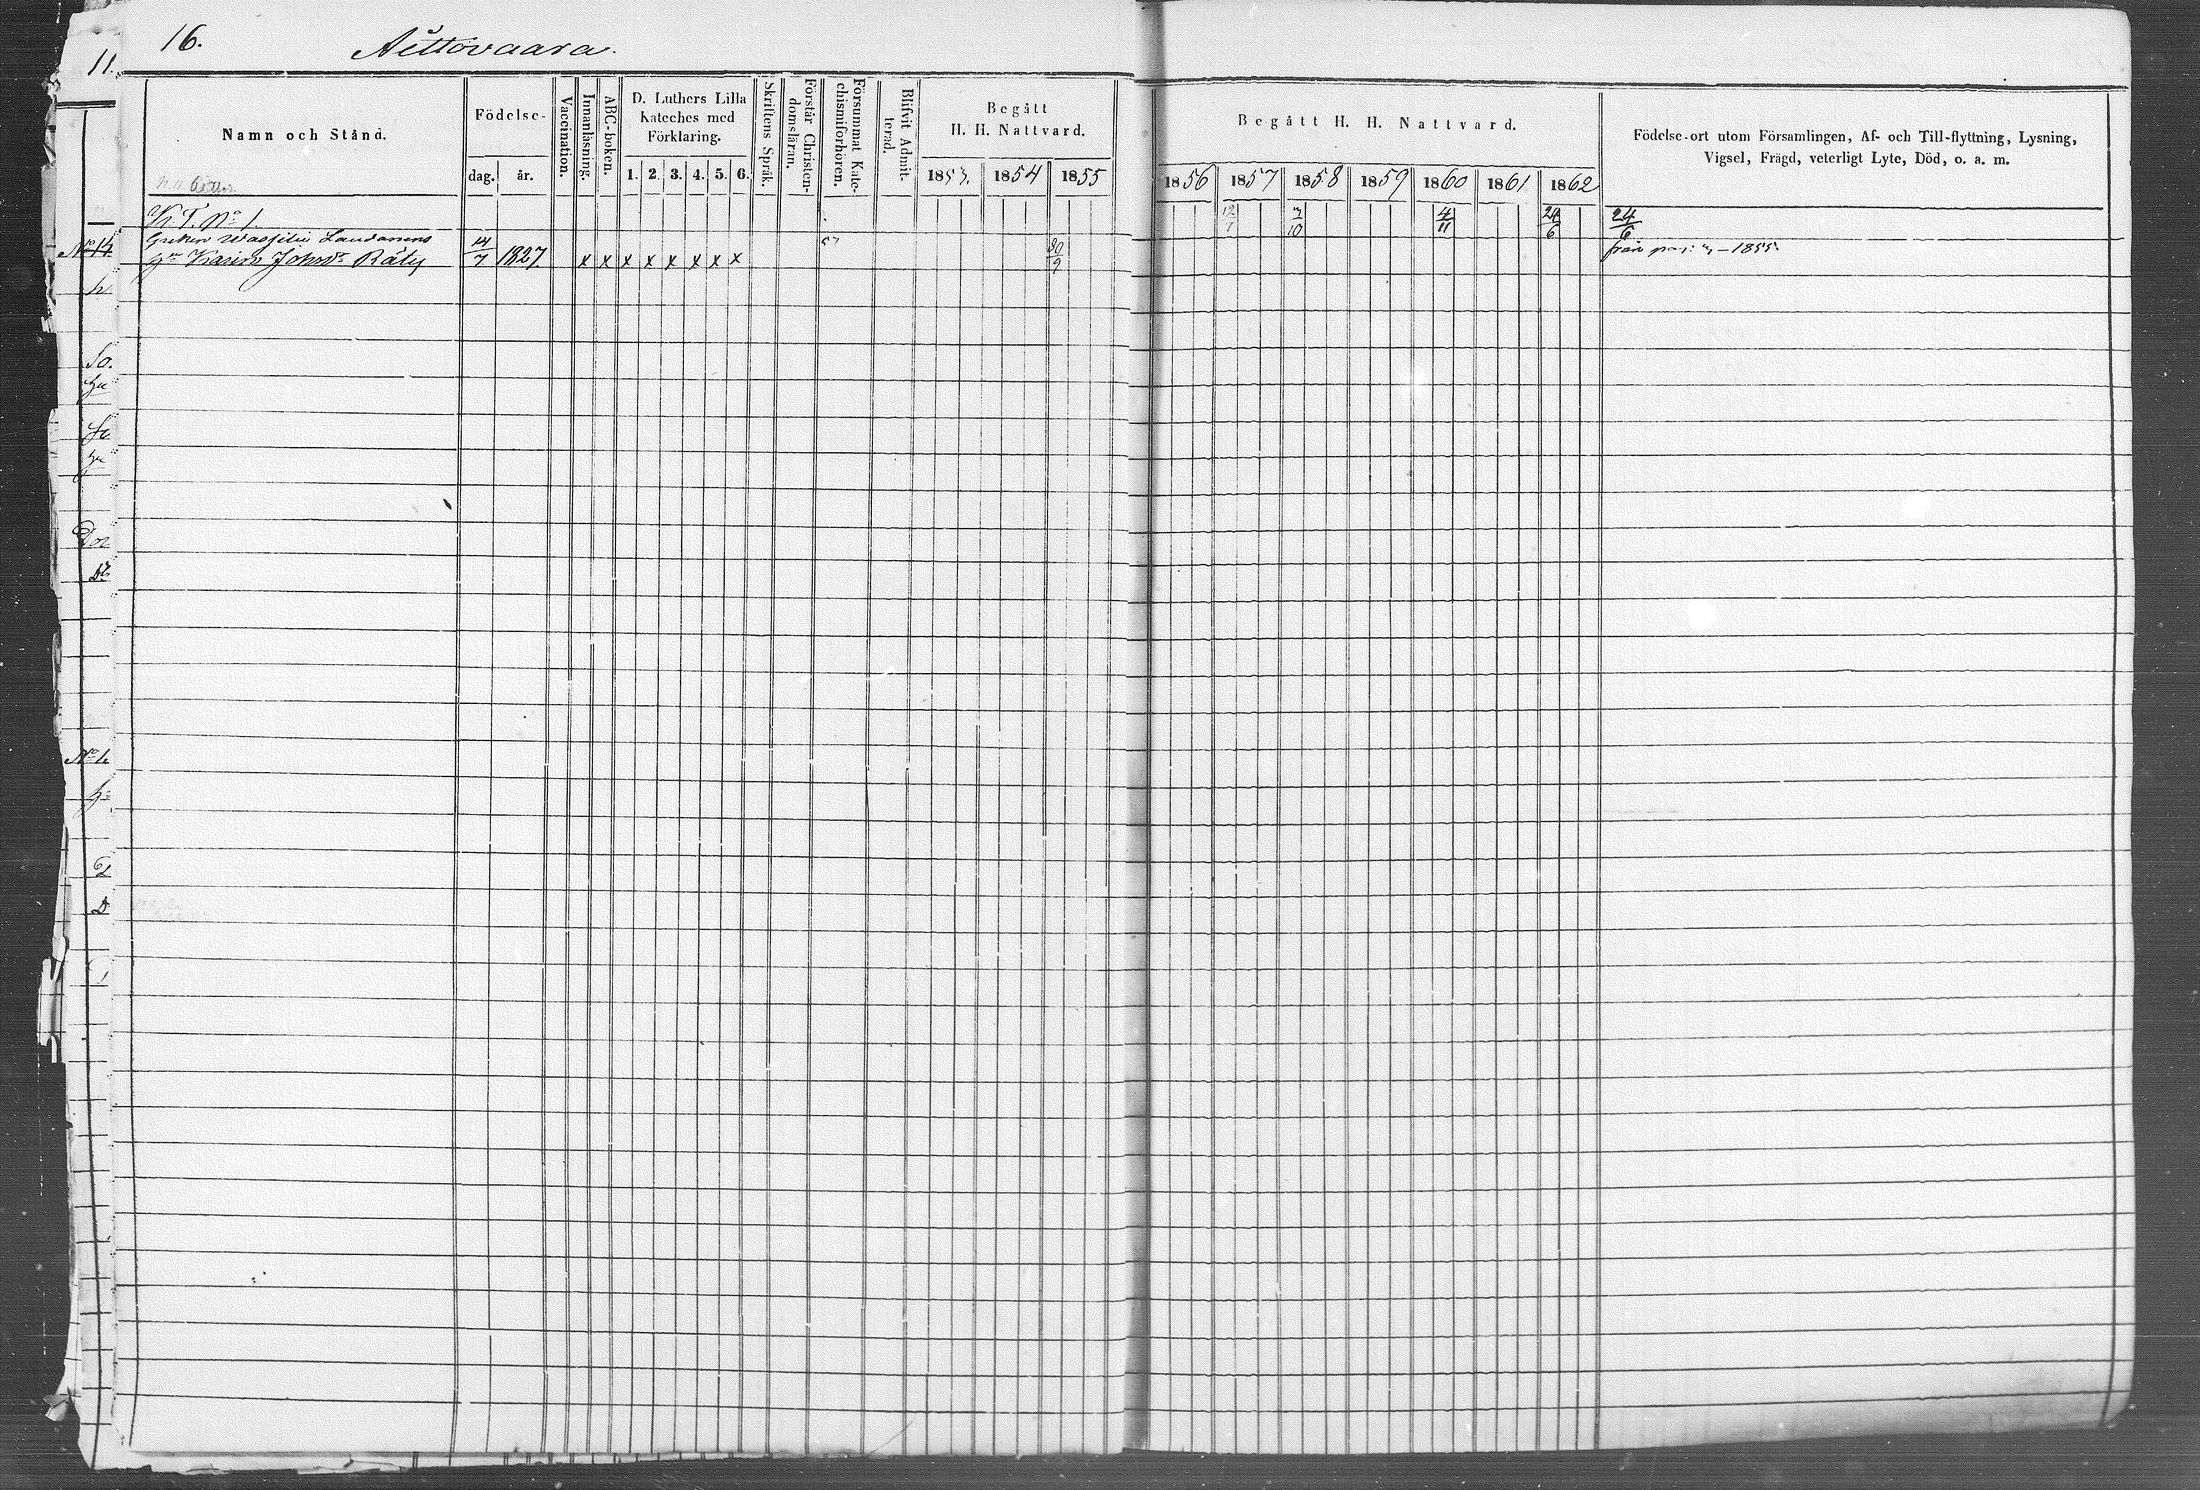 16. Aittovaara.
11.
Namn och Stånd.
Födelse-
dag. år.
Vaccination.
Innanläsning.
ABC-boken.
D. Luthers Lilla
Kateches med
Förklaring.
1. 2. 3. 4. 5. 6.
Skriftens Språk.
Förstår Christen-
domsläran.
Försummat Kate-
chismiförhören.
Blifvit Admit-
terad.
Begått
H. H. Nattvard.
1853. 1854 1855
Begått H. H. Nattvard.
1856 1857 1858 1859 1860 1861 1862
Födelse-ort utom Församlingen, Af- och Till-flyttning, Lysning,
Vigsel, Frägd, veterligt Lyte, Död, o. a. m.
K. T. No 1.
12/7 3/10 4/11 24/6 24/6
Greken Wassilei
hu Karin Johns dr Räty 14/7 1827 x x x x x x x x 30/9 från pag: 1855